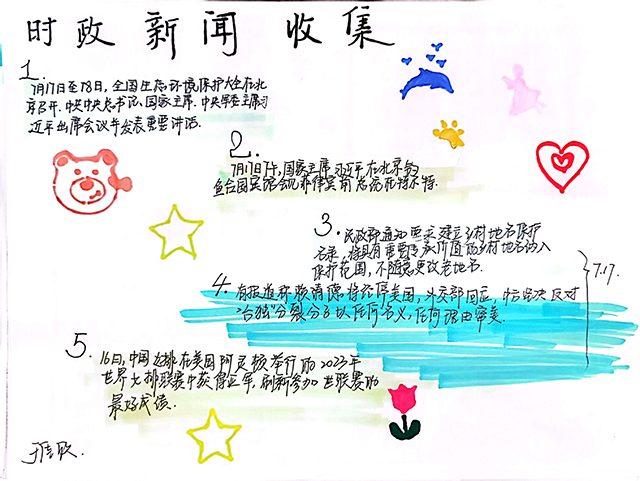 时政新闻收集
1.
7月17日至18日,全国生态环境保护大会在北
京召开.中共中央总书记、国家主席、中央军委主席习
近平出席会议并发表重要讲话.
2.
7月17日下午,国家主席习近平在北京钓
鱼台国宾馆会见菲律宾前总统杜特尔特.
3.
民政部通知要求建立乡村地名保护
名录,将具有重要传承价值的乡村地名纳入
保护范围,不随意更改老地名.
7.17.
4.
有报道称赖清德将经停美国,外交部回应,中方坚决反对
"台独"分裂分子以任何名义,任何理由窜美.
5.
16日,中国女排在美国阿灵顿举行的2023年
世界女排联赛中获得亚军,刷新参加世联赛的
最好成绩.